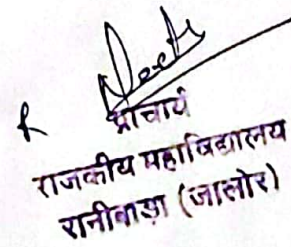 प्राचार्य
राजकीय महाविद्यालय
रानीवाड़ा (जालोर)